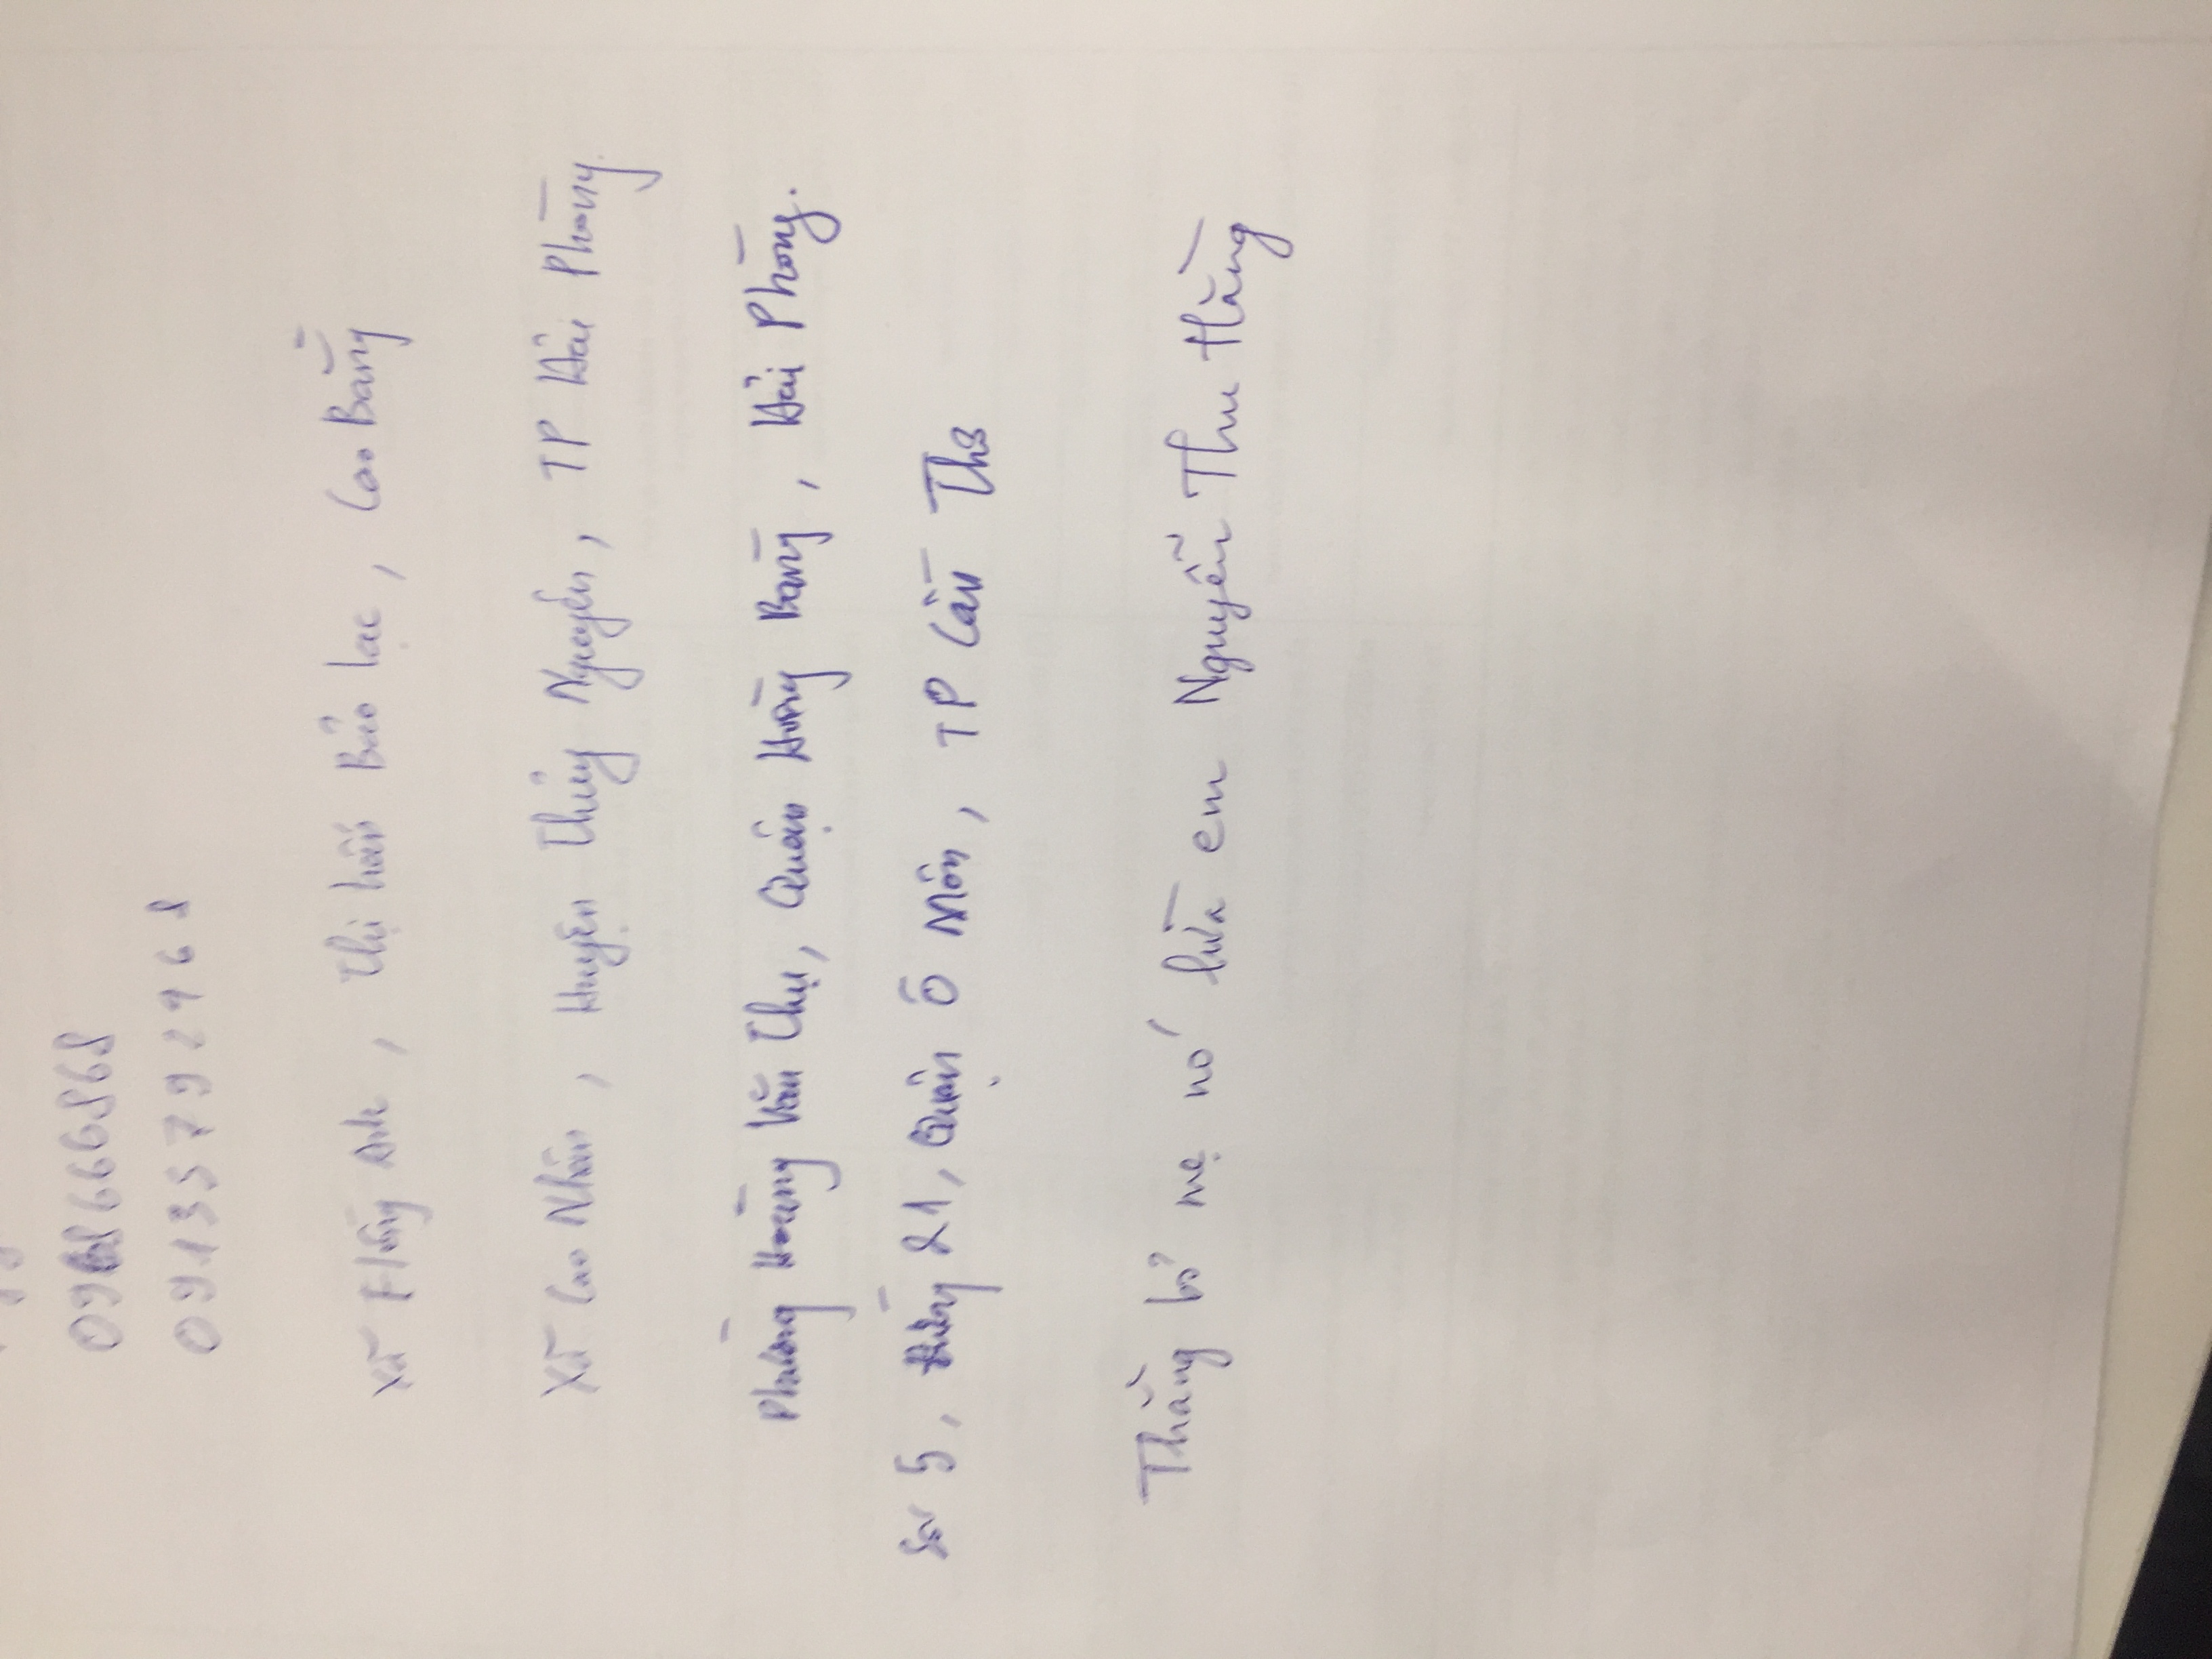 0968666868
09135792968
Xã Hồng Anh, Thị trấn Bảo Lạc, Cao Bằng
Xã Cao Nhân, Huyện Thủy Nguyên, TP Hải Phòng.
Phường Hoàng Văn Thụ, Quận Hồng Bàng, Hải Phòng.
Số 5, đường 21, Quận Ô Môn, TP Cần Thơ
Thằng bỏ mẹ nó lừa em Nguyễn Thu Hằng